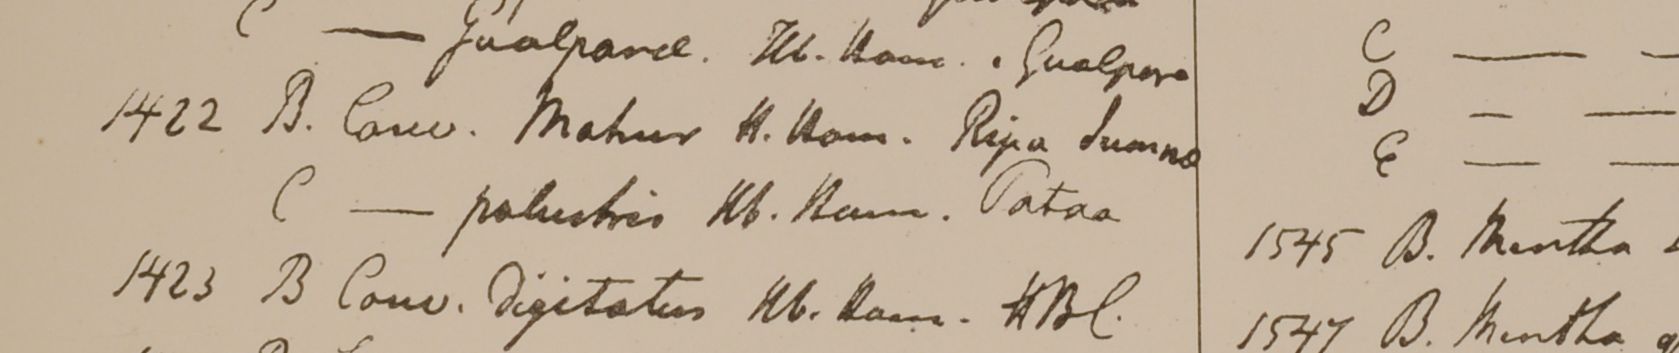 C — Gualpara. Hb. Ham. Gualpara
1422 B. Conv. Mahur H. Ham. Ripa Jumna
C — palustris Hb. Ham. Patna
1423 B Conv. Digitatus Hb. Ham. HBC.
C — —
D — —
E — —
1545 B. Mentha
1547 B. Mentha